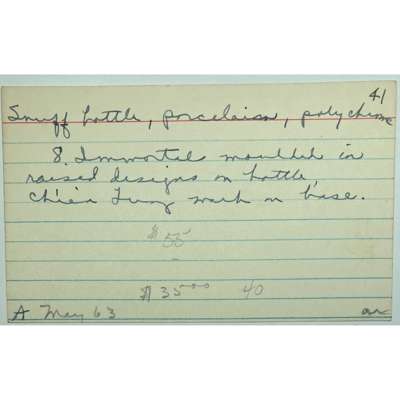 41
Snuff bottle, porcelain, polychrome
8. Immortals moulded in
raised designs on bottle,
Ch'ien Lung mark on base.
$55
-
$35.00 40
A May 63 an